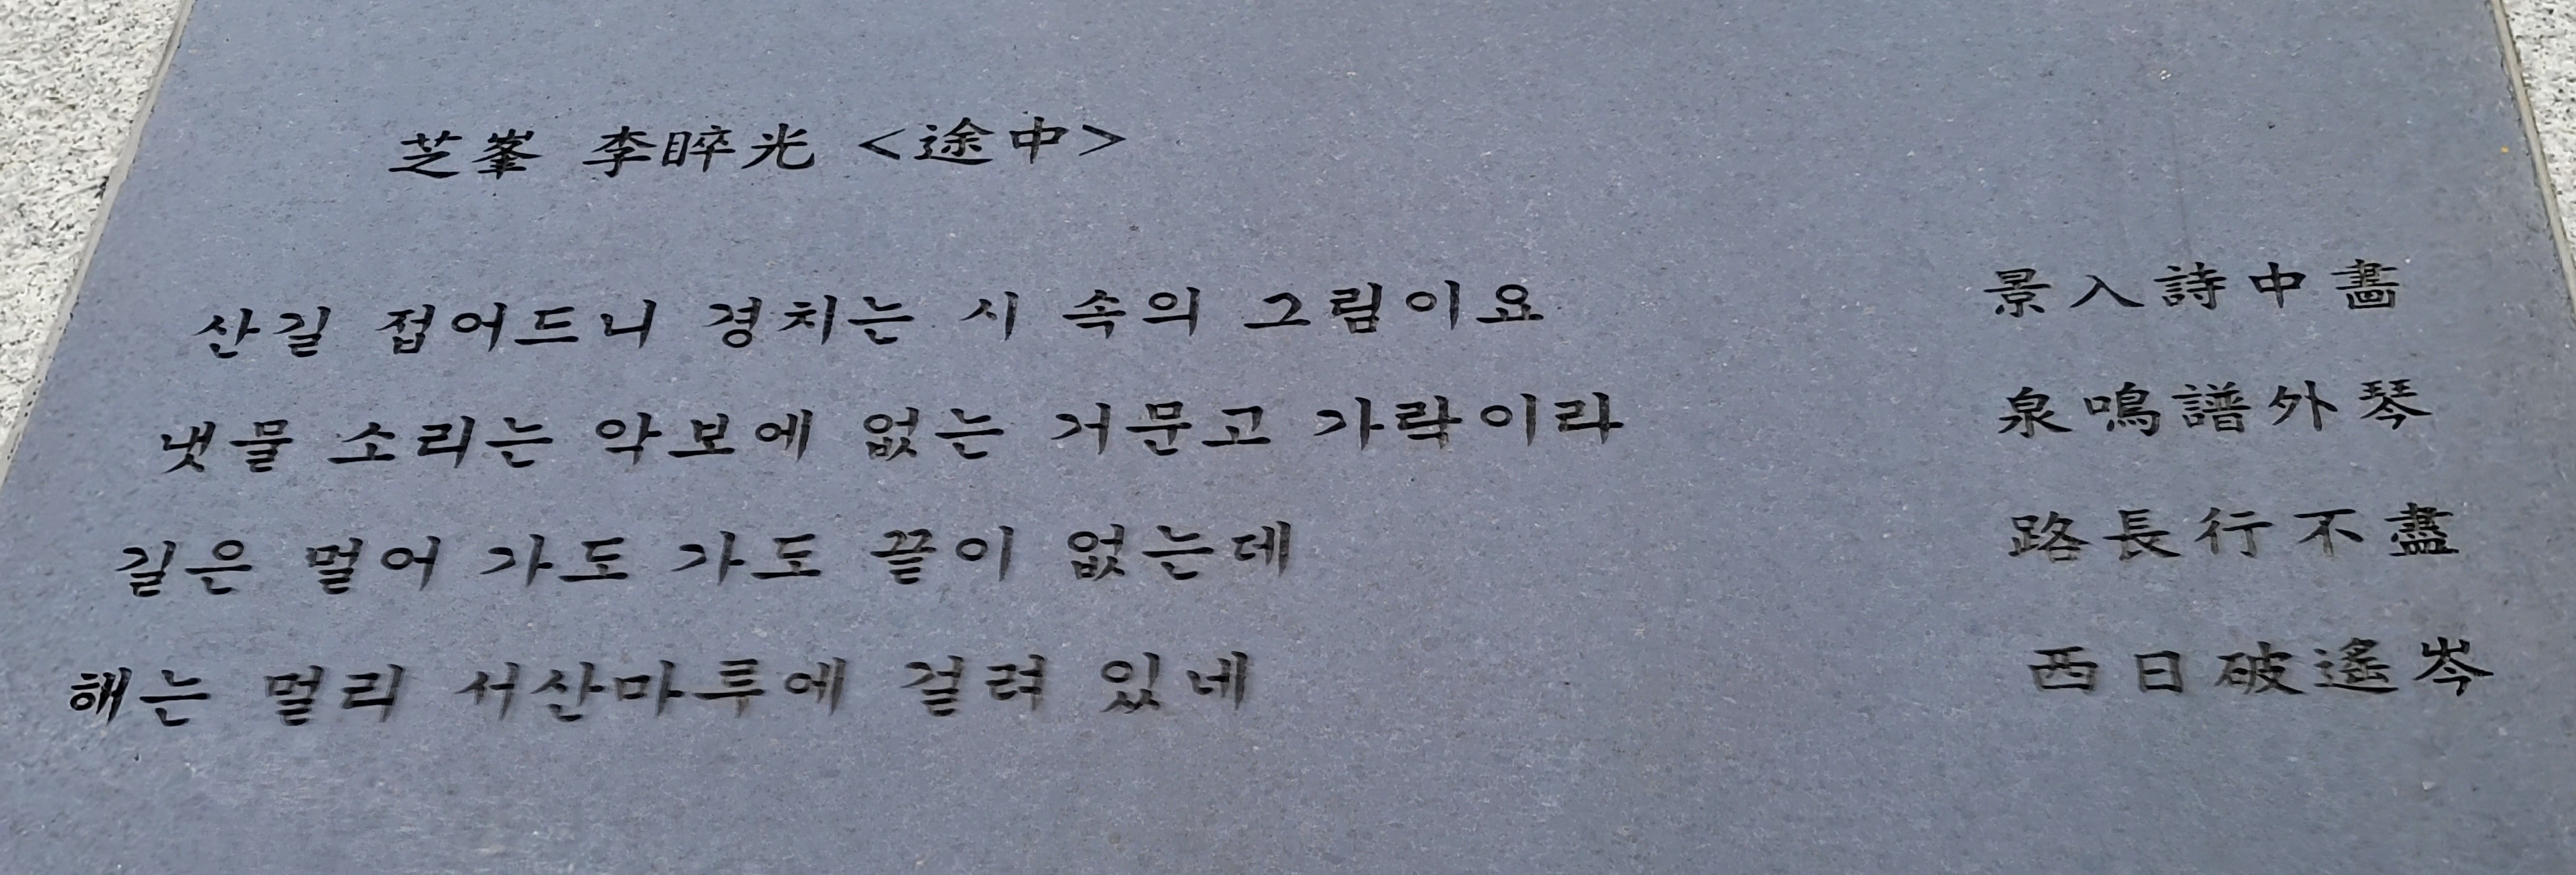 芝峯 李睟光 <途中>
산길 접어드니 경치는 시 속의 그림이요
景入詩中畵
냇물 소리는 악보에 없는 거문고 가락이라
泉鳴譜外琴
길은 멀어 가도 가도 끝이 없는데
路長行不盡
해는 멀리 서산마루에 걸려 있네
西日破遙岑